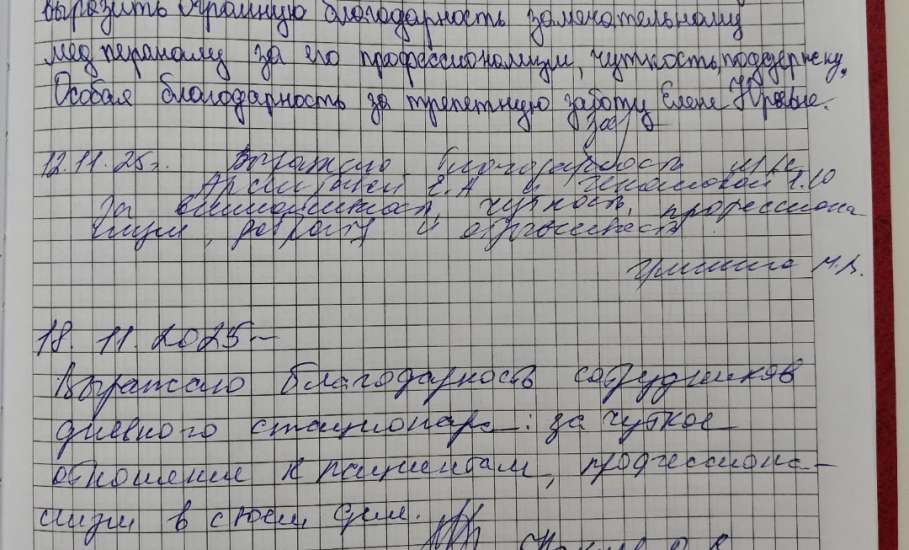 выразить огромную благодарность замечательному
мед персоналу за его профессионализм, чуткость, поддержку.
Особая благодарность за трепетную заботу Елене Юрьевне.
12.11.25г. Выражаю благодарность м/с
Е.А и
за внимательност, чуткость, профессиона
лизм, доброту и
М.В.
18.11.2025-
Выражаю благодарность сотрудников
дневного стационара: за чуткое
отношение к пациентам, профессиона-
лизм в своем деле.